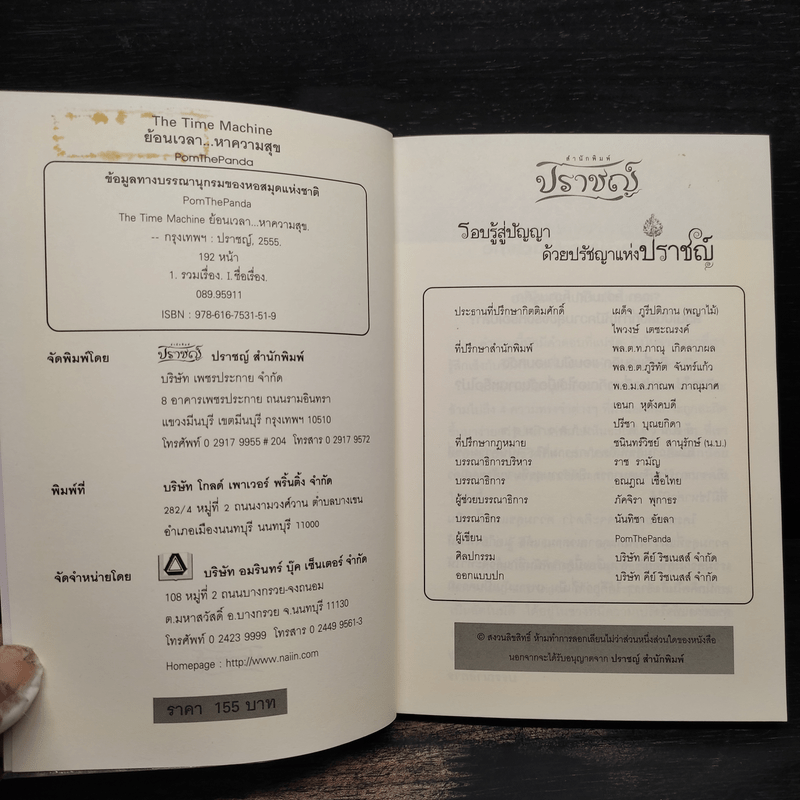 The Time Machine
ย้อนเวลา...หาความสุข
PomThePanda
ข้อมูลทางบรรณานุกรมของหอสมุดแห่งชาติ
PomThePanda
The Time Machine ย้อนเวลา...หาความสุข.
-- กรุงเทพฯ : ปราชญ์, 2555.
192 หน้า
1. รวมเรื่อง. I.ชื่อเรื่อง.
089.95911
ISBN : 978-616-7531-51-9
จัดพิมพ์โดย ปราชญ์ ปราชญ์ สำนักพิมพ์
บริษัท เพชรประกาย จำกัด
8 อาคารเพชรประกาย ถนนรามอินทรา
แขวงมีนบุรี เขตมีนบุรี กรุงเทพฯ 10510
โทรศัพท์ 0 2917 9955 # 204 โทรสาร 0 2917 9572
พิมพ์ที่ บริษัท โกลด์ เพาเวอร์ พริ้นติ้ง จำกัด
282/4 หมู่ที่ 2 ถนนงามวงศ์วาน ตำบลบางเขน
อำเภอเมืองนนทบุรี นนทบุรี 11000
จัดจำหน่ายโดย บริษัท อมรินทร์ บุ๊ค เซ็นเตอร์ จำกัด
108 หมู่ที่ 2 ถนนบางกรวย-จงถนอม
ต.มหาสวัสดิ์ อ.บางกรวย จ.นนทบุรี 11130
โทรศัพท์ 0 2423 9999 โทรสาร 0 2449 9561-3
Homepage : http://www.naiin.com
ราคา 155 บาท
สำนักพิมพ์
ปราชญ์
รอบรู้สู่ปัญญา
ด้วยปรัชญาแห่งปราชญ์
ประธานที่ปรึกษากิตติมศักดิ์ เผด็จ ภูรีปติภาน (พญาไม้)
ไพวงษ์ เตชะณรงค์
ที่ปรึกษาสำนักพิมพ์ พล.ต.ท.ภาณุ เกิดลาภผล
พล.อ.ต.ภูริทัต จันทร์แก้ว
พ.อ.ม.ล.ภาณพ ภาณุมาศ
เอนก หุตังคบดี
ปรีชา บุณยกิดา
ที่ปรึกษากฎหมาย ชนินทร์วิชย์ สานุรักษ์ (น.บ.)
บรรณาธิการบริหาร ราช รามัญ
บรรณาธิการ อณฎณ เชื้อไทย
ผู้ช่วยบรรณาธิการ ภัคจิรา พุกาธร
บรรณาธิกร นันทิชา อัยลา
ผู้เขียน PomThePanda
ศิลปกรรม บริษัท คีย์ ริชเนสส์ จำกัด
ออกแบบปก บริษัท คีย์ ริชเนสส์ จำกัด
© สงวนลิขสิทธิ์ ห้ามทำการลอกเลียนไม่ว่าส่วนหนึ่งส่วนใดของหนังสือ
นอกจากจะได้รับอนุญาตจาก ปราชญ์ สำนักพิมพ์